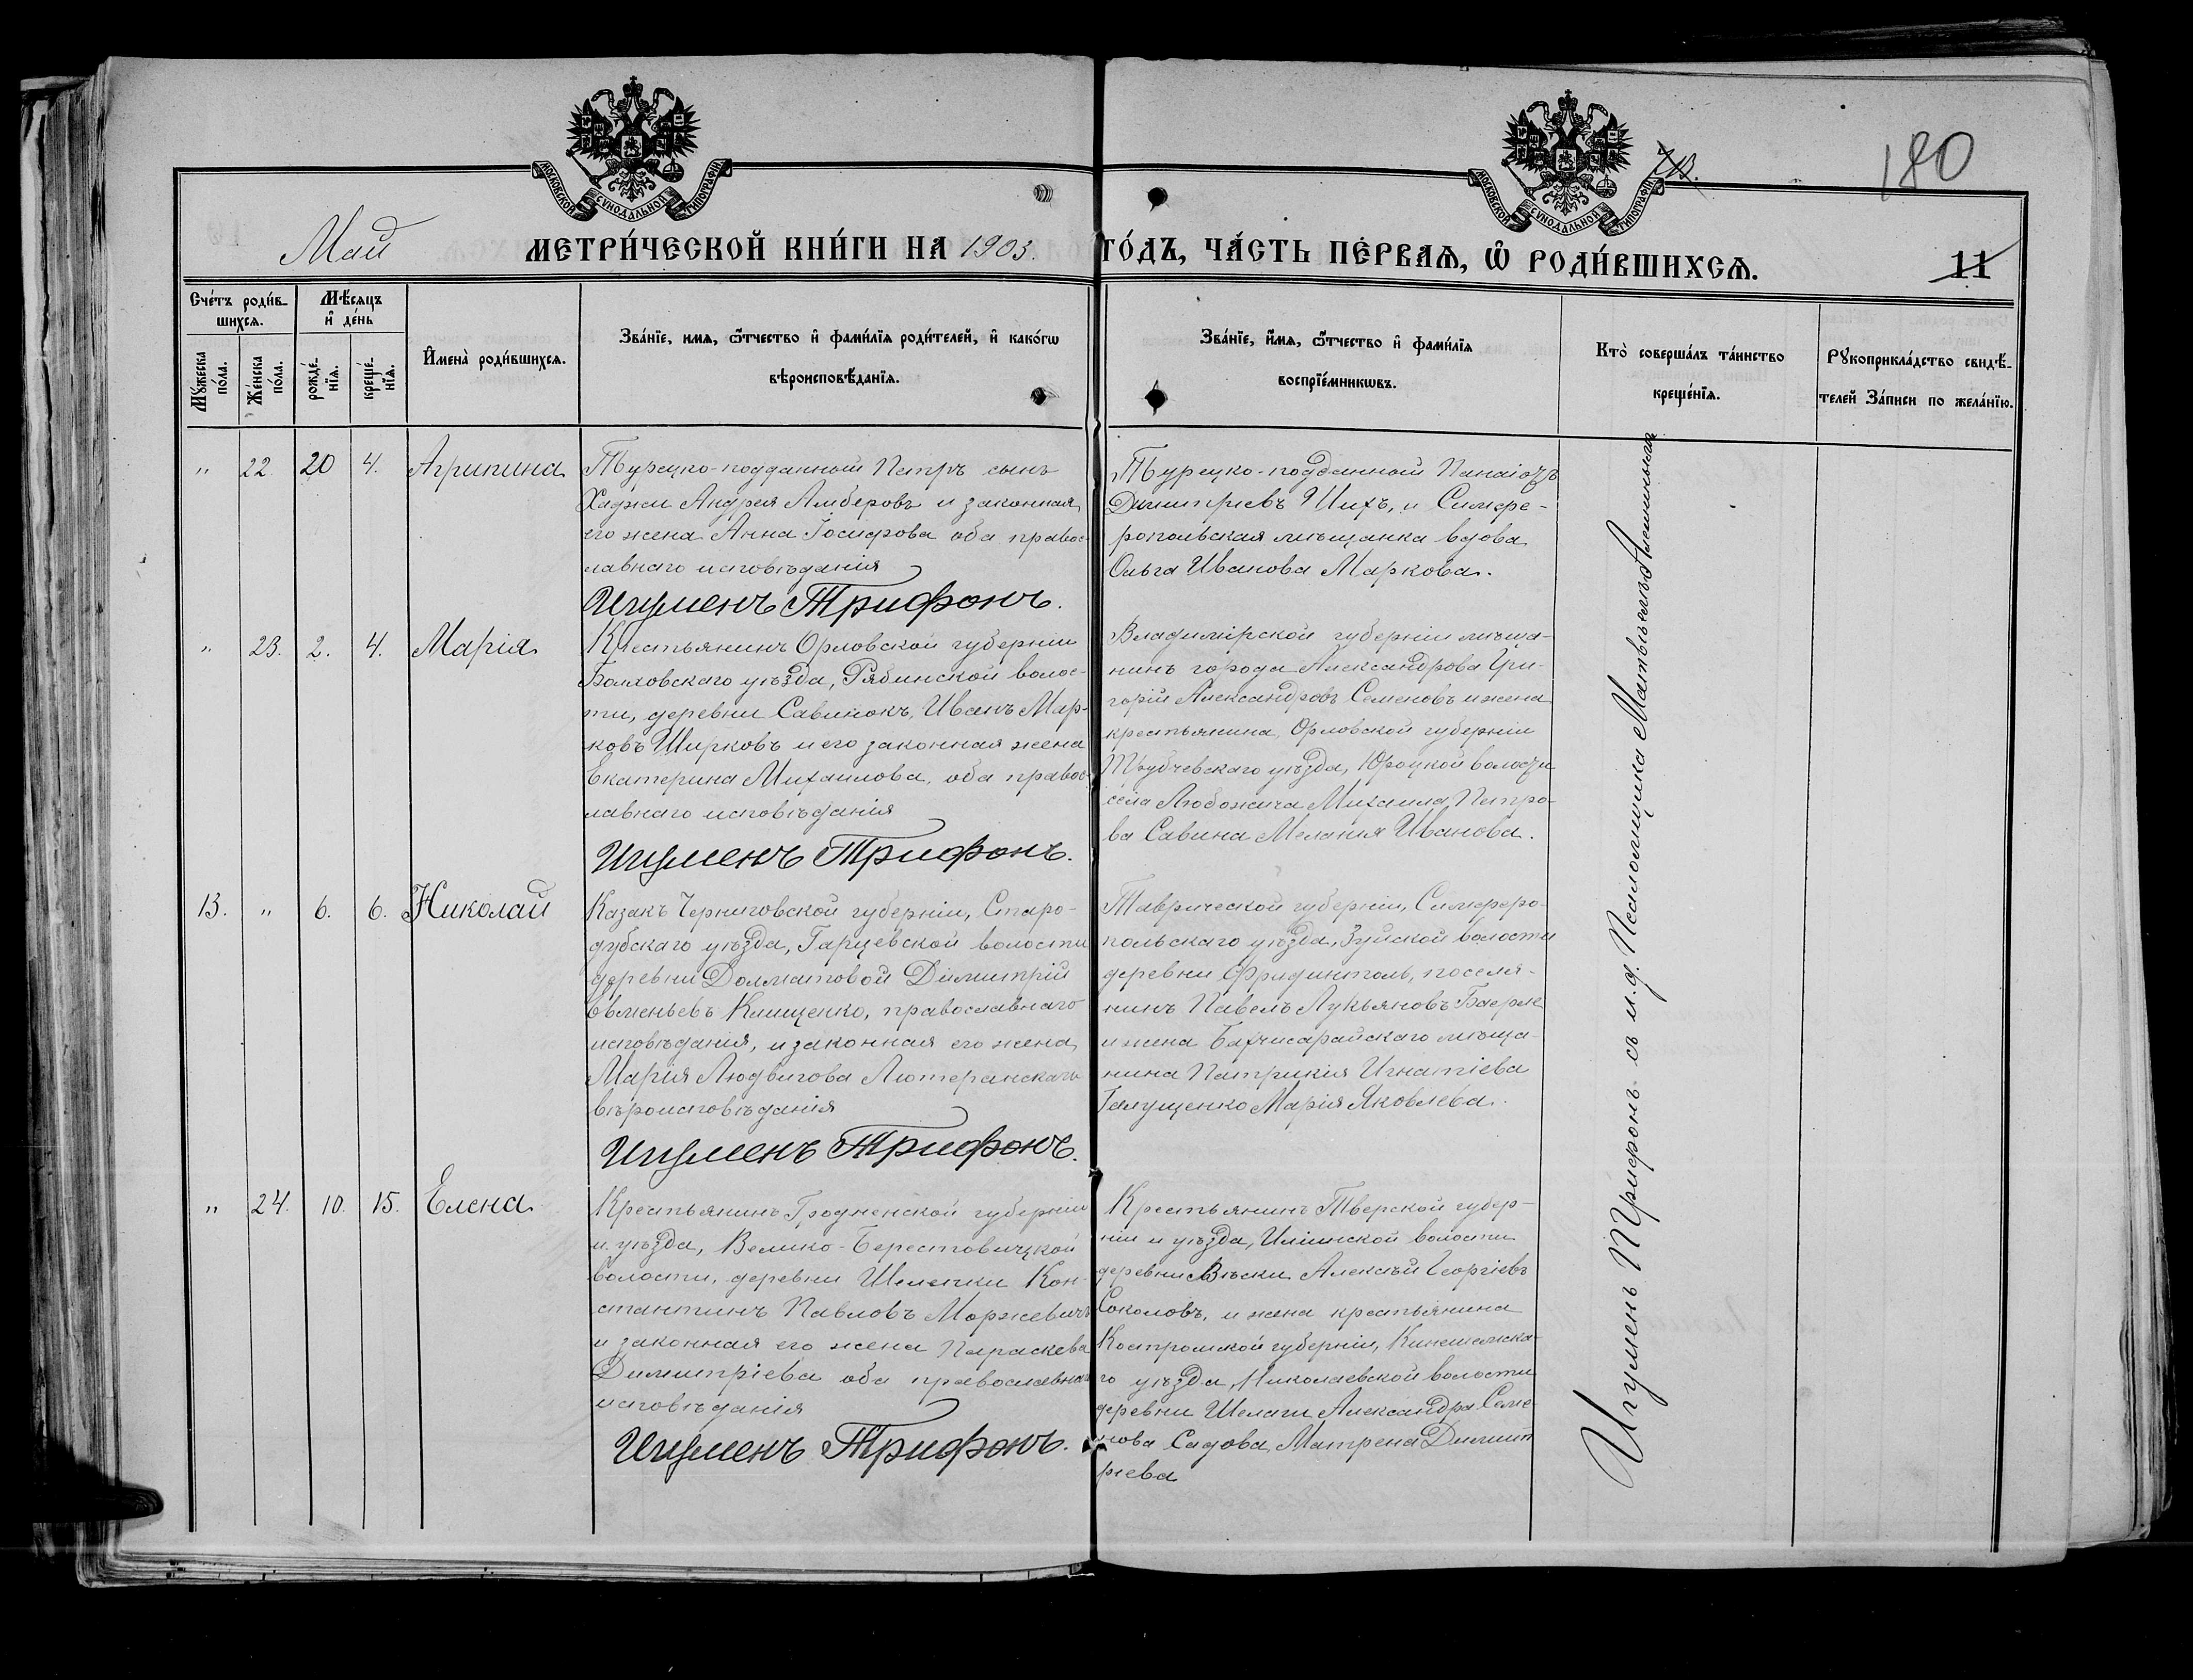 МОСКОВСКОЙ СУНОДАЛЬНОЙ ТИПОГРАФІИ
МОСКОВСКОЙ СУНОДАЛЬНОЙ ТИПОГРАФІИ
180
Май
МЕТРИ́ЧЕСКОЙ КНИ́ГИ НА 1903.
ГО́ДЪ, ЧА́СТЬ ПЕ́РВАѦ, Ѡ҆ РОДИ́ВШИХСѦ.
11
Сче́тъ роди́в-
шихсѧ.
Мѣ́сѧцъ
и҆ де́нь
Мꙋ́жеска
по́ла.
Же́нска
по́ла.
рожде́-
нїѧ.
креще́-
нїѧ.
И҆мена̀ роди́вшихсѧ.
Зва́нїе, имѧ, ѻ҆́тчество и҆ фами́лїѧ роди́телей, и҆ како́гѡ
вѣроисповѣ́данїѧ.
Зва́нїе, и҆́мѧ, ѻ҆́тчество и҆ фами́лїѧ
воспрїе́мникѡвъ.
Кто̀ соверша́лъ та́инство
креще́нїѧ.
Рꙋкоприкла́дство свидѣ́-
телей За́писи по жела́нїю.
" 22. 20 4. Агрипина
Турецко-подданный Петръ сынъ
Хаджи Андрея Амберовъ и законная
его жена Анна Іосифова оба правос-
лавнаго исповѣданія
Игуменъ Трифонъ.
Турецко-подданный Панаіотъ
Димитріевъ Шихъ, и Симфе-
ропольская мѣщанка вдова
Ольга Иванова Маркова.
" 23. 2. 4. Марія
Крестьянинъ Орловской губерніи
Болховскаго уѣзда, Рябинской волос-
ти, деревни Савинокъ, Иванъ Мар-
ковъ Ширковъ и его законная жена
Екатерина Михаилова, оба правос-
лавнаго исповѣданія
Игуменъ Трифонъ.
Владимірской губерніи мѣща-
нинъ города Александрова Гри-
горій Александровъ Семеновъ и жена
крестьянина, Орловской губерніи
Трубчевскаго уѣзда, Юроцкой волости
села Любожича Михаила Петро-
ва Савина Меланія Иванова.
13. " 6. 6. Николай
Казакъ Черниговской губерніи, Старо-
дубскаго уѣзда, Гарцевской волости
деревни Долматовой Димитрій
Евменьевъ Клищенко, православнаго
исповѣданія, и законная его жена
Марія Людвигова Лютеранскаго
вѣроисповѣданія
Игуменъ Трифонъ.
Таврической губерніи, Симферо-
польскаго уѣзда, Зуйской волости
деревни Фридинталь, поселя-
нинъ Павелъ Лукьяновъ
и жена Бахчисарайскаго мѣща-
нина Патрикія Игнатіева
Галущенко Марія Яковлева.
" 24. 10. 15. Елена
Крестьянинъ Гродненской губерніи
и уѣзда, Велико-Берестовицкой
волости, деревни Шелепки Кон-
стантинъ Павловъ Моржевичъ
и законная его жена Параскева
Димитріева оба православнаго
исповѣданія
Игуменъ Трифонъ.
Крестьянинъ Тверской губер-
ніи и уѣзда, Ильинской волости
деревни Вѣски Алексѣй Георгіевъ
Соколовъ, и жена крестьянина
Костромской губерніи, Кинешемска-
го уѣзда, Николаевской волости
деревни Шелаги Александра Семе-
нова Садова, Матрена Димит
ріева
Игуменъ Трифонъ съ и.д. Псаломщика Матвѣемъ